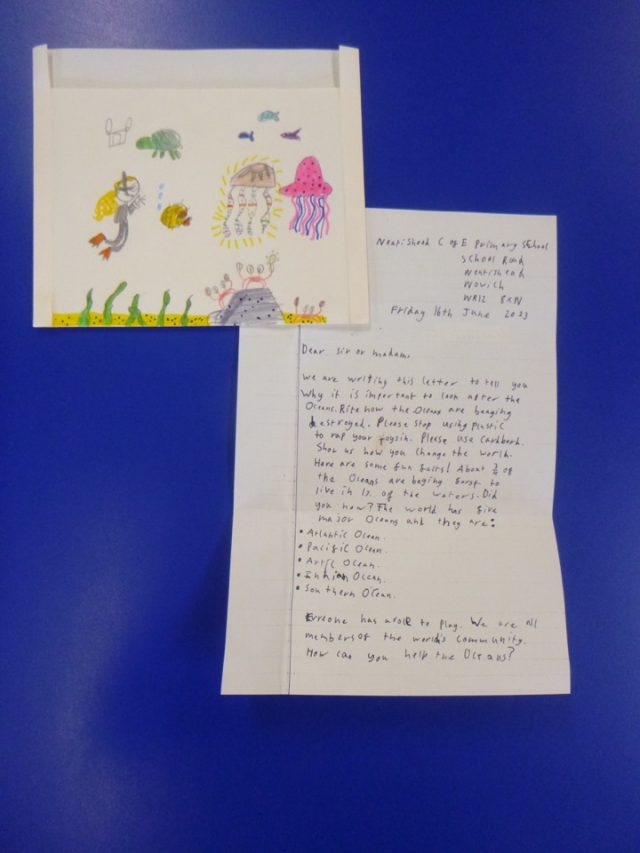 Neatishead C of E Primary School
School Road
Neatishead
Nowich
NR12 8XN
Friday 16th June 2023
Dear sir or madam,
we are writing this letter to tell you
Why it is important to look after the
Oceans. Rite now the Oceans are beaging
destroyed. Please stop using plastic
to rap your toysin. Please use Cardbord.
Show us how you change the world.
Here are some fun facts! About 3/4 of
the Oceans are beging forst to
live in 1% of the waters. Did
you now? The world has five
major Oceans and they are:
• Atlantic Ocean.
• Pacific Ocean.
• Artic Ocean.
• Indian Ocean.
• Southern Ocean.
Erreone has a role to play. We are All
members of the world's Community.
How can you help the Oceans?